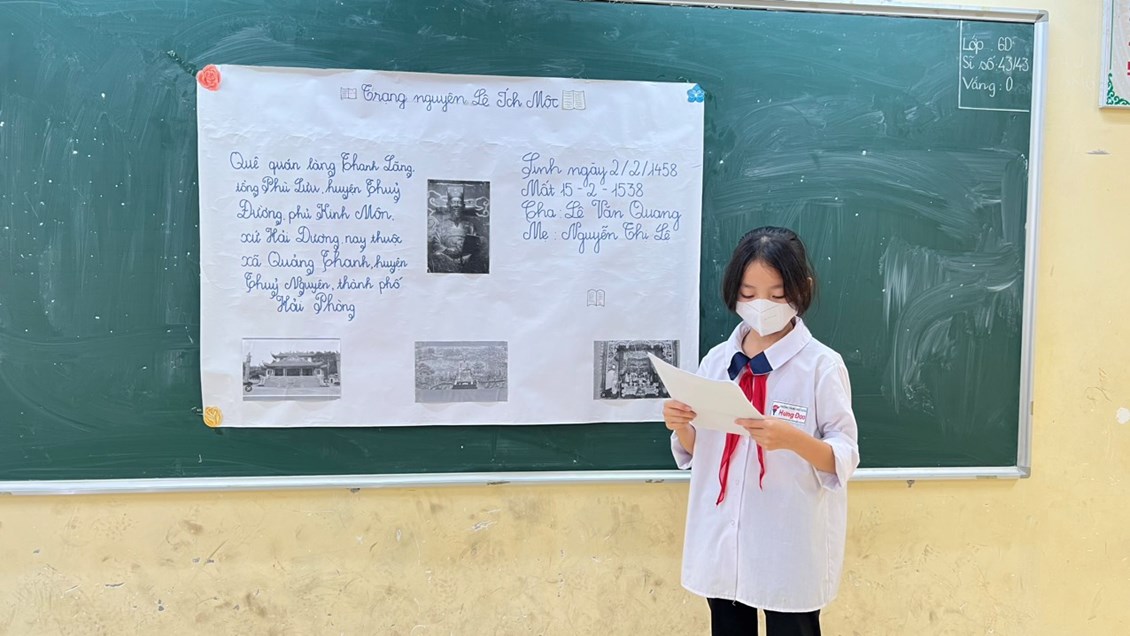 Trạng nguyên Lê Ích Mộc
Quê quán làng Thanh Lãng,
tổng Phù Lưu, huyện Thuỷ
Đường, phủ Kinh Môn,
xứ Hải Dương, nay thuộc
xã Quảng Thanh, huyện
Thuỷ Nguyên, thành phố
Hải Phòng
Sinh ngày 2/2/1458
Mất 15-2-1538
Cha: Lê Văn Quang
Mẹ: Nguyễn Thị Lê
Lớp: 6D
Sĩ số: 43/43
Vắng: 0
Hưng Đạo